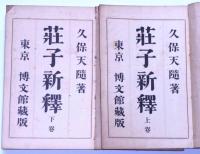 久保天隨著
莊子新釋
上卷
東京 博文館藏版
久保天隨著
莊子新釋
下卷
東京 博文館藏版